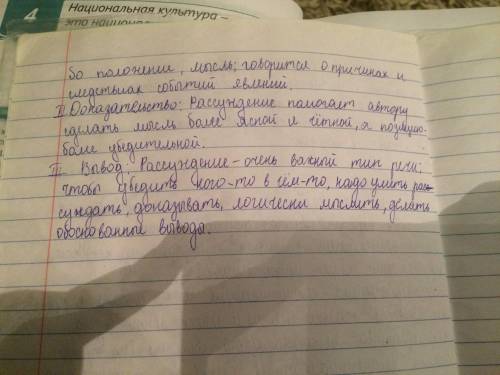 4
Национальная культура –
это национ
бо положение, мысль; говорится о причинах и
следствиях событий явлений.
II Доказательство: Рассуждение помогает автору
сделать мысль более ясной и чёткой, а позицию
более убедительной.
III Вывод: Рассуждение – очень важной тип речи;
чтобы убедить кого-то в чём-то, надо уметь рас-
суждать, доказывать, логически мыслить, делать
обоснованные выводы.